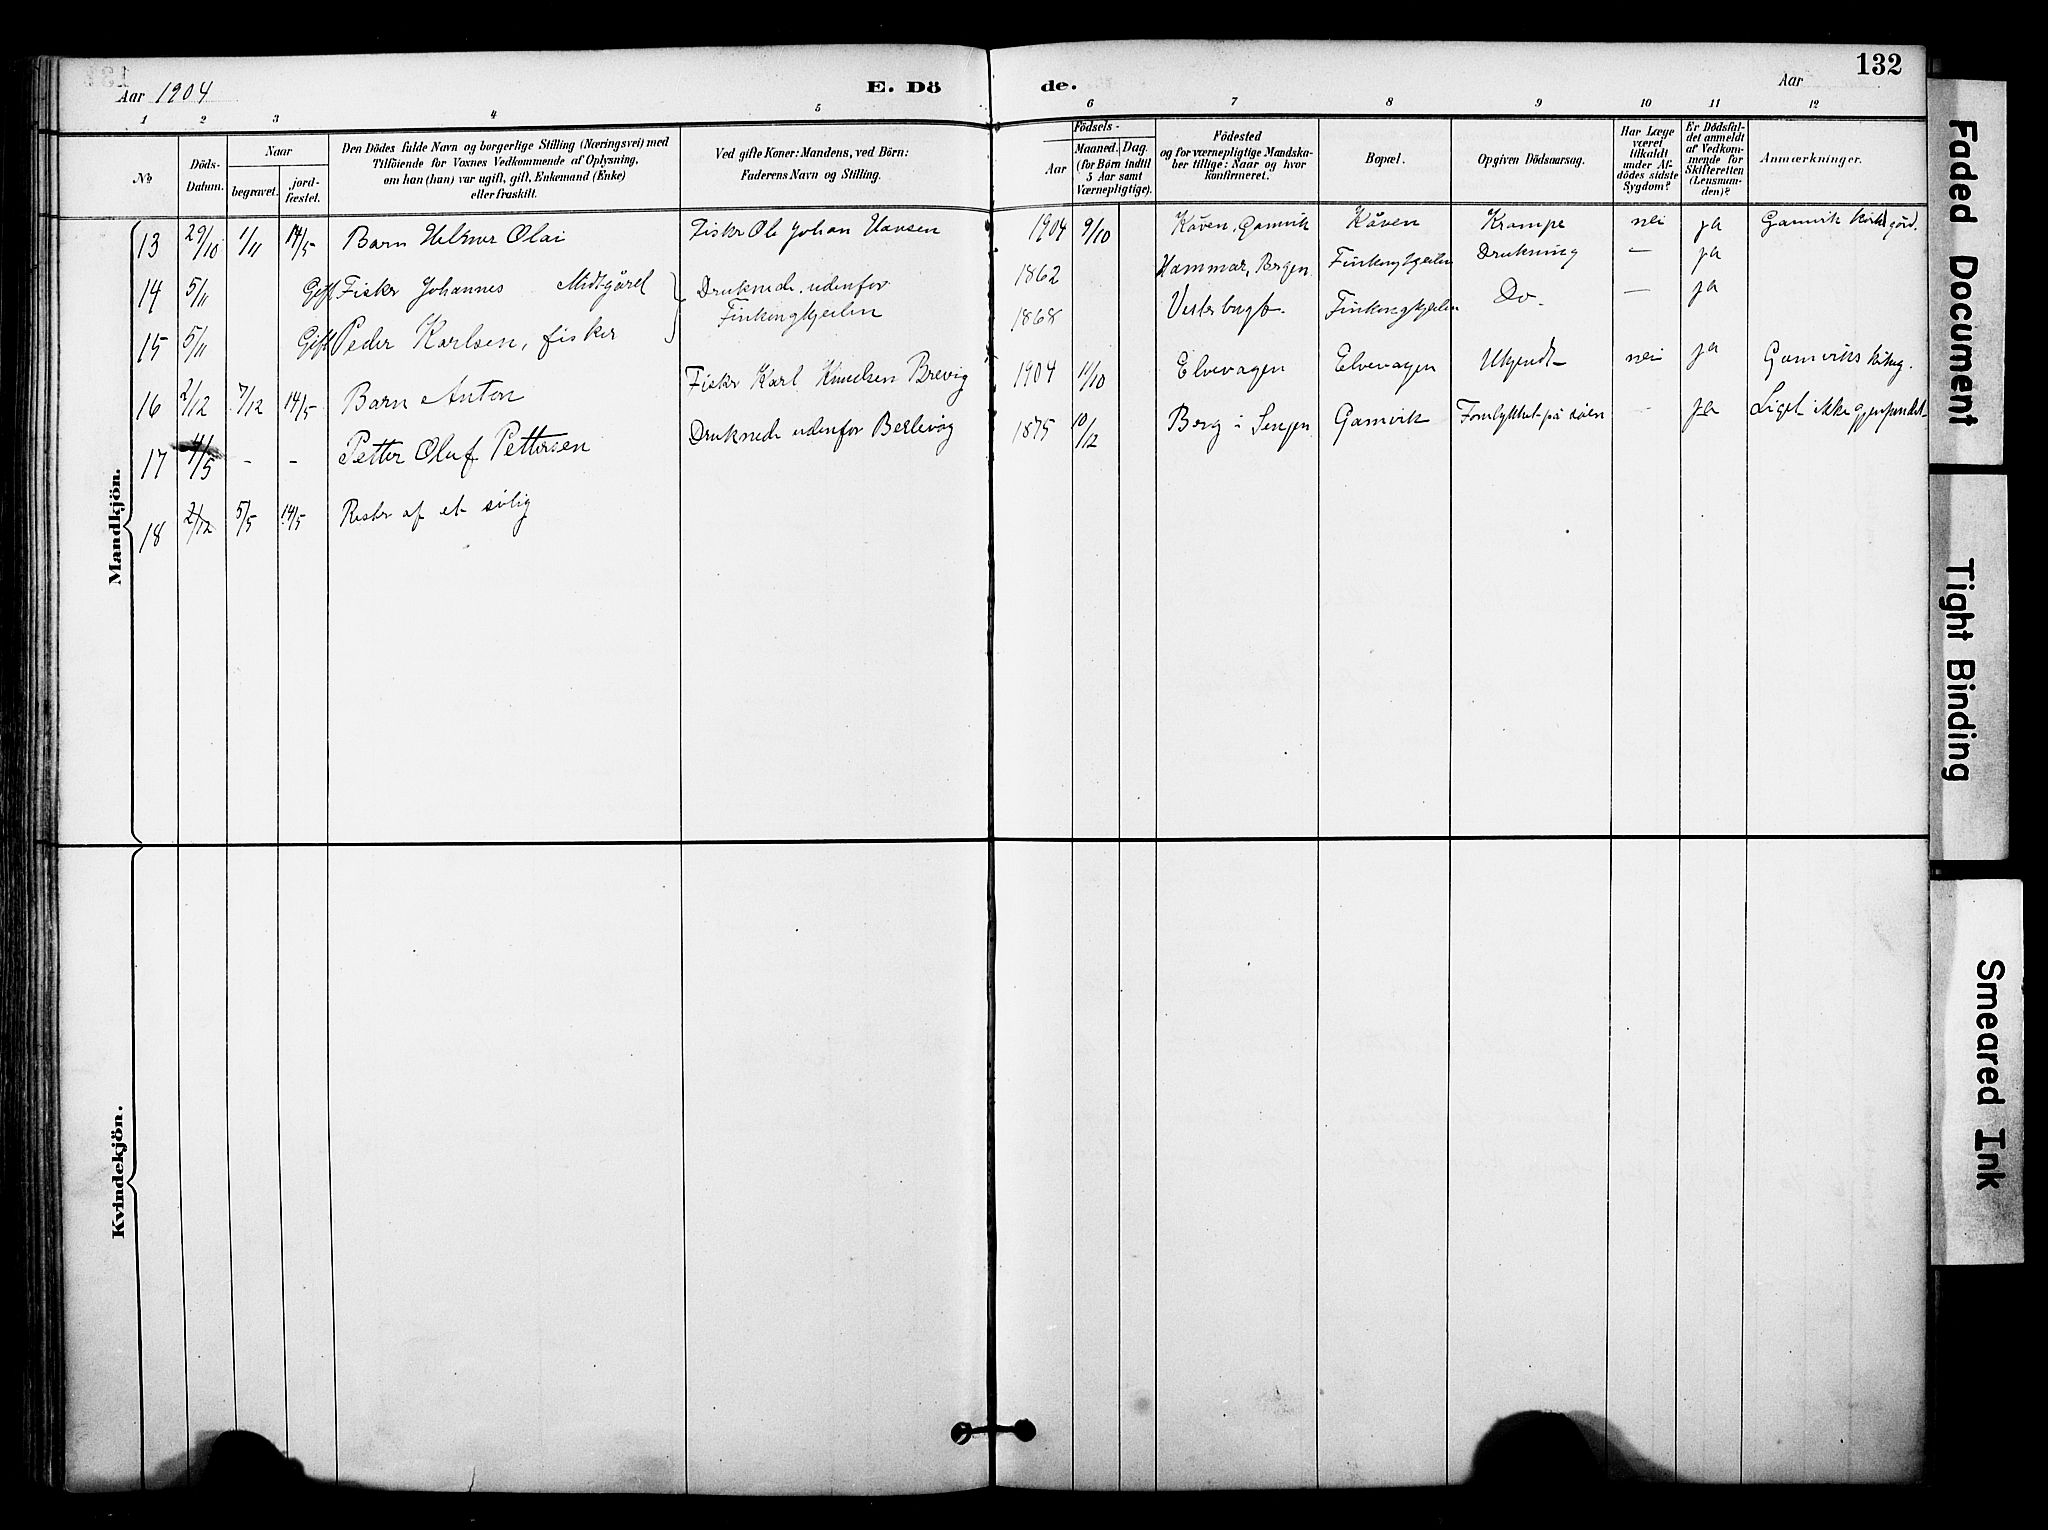 Aar 1904
E. Dö
de.
Aar
132
1 2 3 4 5 6 7 8 9 10 11 12
No
Döds-
Datum.
Naar
begravet.
jord-
fæstet.
Den Dödes fulde Navn og borgerlige Stilling (Næringsvei) med
Tilföiende for Voxnes Vedkommende af Oplysning,
om han (hun) var ugift, gift, Enkemand (Enke)
eller fraskilt.
Ved gifte Koner: Mandens, ved Börn:
Faderens Navn og Stilling.
Födsels-
Aar
Maaned. Dag.
(for Börn indtil
5 Aar samt
Værnepligtige).
Födested
og for værnepligtige Mandska-
ber tillige: Naar og hvor
konfirmeret.
Bopæl.
Opgiven Dödsaarsag.
Har Læge
været
tilkaldt
under Af-
dödes sidste
Sygdom?
Er Dödsfal-
det anmeldt
af Vedkom-
mende for
Skifteretten
(Lensman-
den)?
Anmærkninger.
Mandkjön.
13 29/10 1/11 14/5 Barn Helmer Olai Fisker Ole Johan Hansen 1904 9/10 Kåven, Gamvik Kåven Krampe nei ja Gamvik kirkegård.
14 5/11 Gift Fisker Johannes Midtgård Druknede udenfor 1862 Hammar, Bergen Finkongkjeilen Drukning — ja
Finkongkjeilen
15 5/11 Gift Peder Karlsen, fisker 1868 Finkongkjeilen Do. — ja
16 2/12 7/12 14/5 Barn Anton Fisker Karl Knudsen Brevig 1904 11/10 Elvevagen Elvevagen Ukjendt nei ja Gamviks
17 4/5 - - Petter Olaf Pettersen Druknede udenfor Berlevåg 1875 10/12 Berg i Senjen Gamvik Forulykket på söen — ja Liget ikke gjenfundet
18 2/12 5/5 14/5 Rester af et sölig
Kvindekjön.
Faded Document
Tight Binding
Smeared Ink